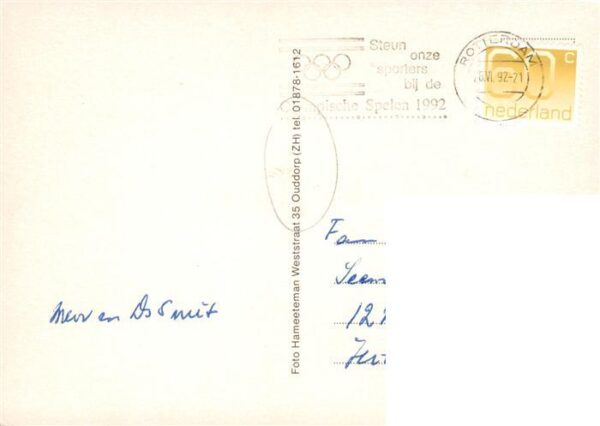 Steun
onze
sporters
bij de
pische Spelen 1992
ROTTERDAM
VI. 92-21
60 c
nederland
Foto Hameeteman Weststraat 35 Ouddorp (ZH) tel. 01878-1612
Fam
en Ds Smit